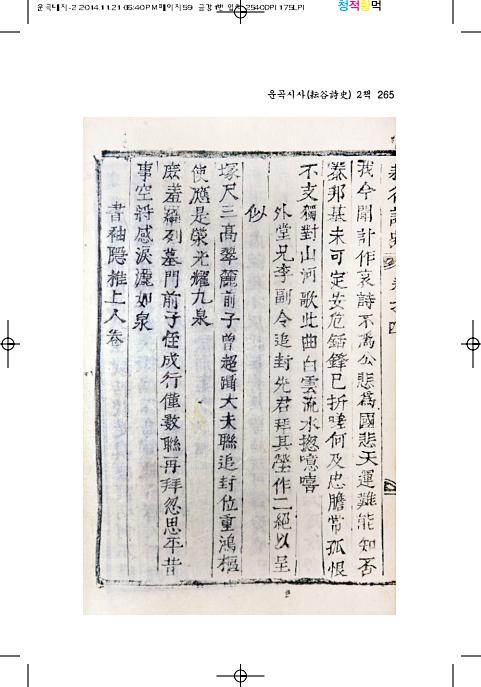 운곡내지-2 2014.11.21 05:40 PM 페이지59
2540DPI 175LPI
청적황먹
운곡시사(耘谷詩史) 2책 265
我今聞訃作哀詩不爲公悲爲國悲天運難能知否
泰邦基未可定安危銛鋒已折嗟何及忠膽常孤恨
不支獨對山河歌此曲白雲流水揔噫嘻
外堂兄李副令追封先君拜其塋作二絶以呈
似
塚尺三高翠麓前子曾超躋大夫聯追封位重鴻樞
使應是榮光耀九泉
庶羞羅列墓門前子侄成行僅數聯再拜忽思平昔
事空將感淚灑如泉
書袖隱推上人卷